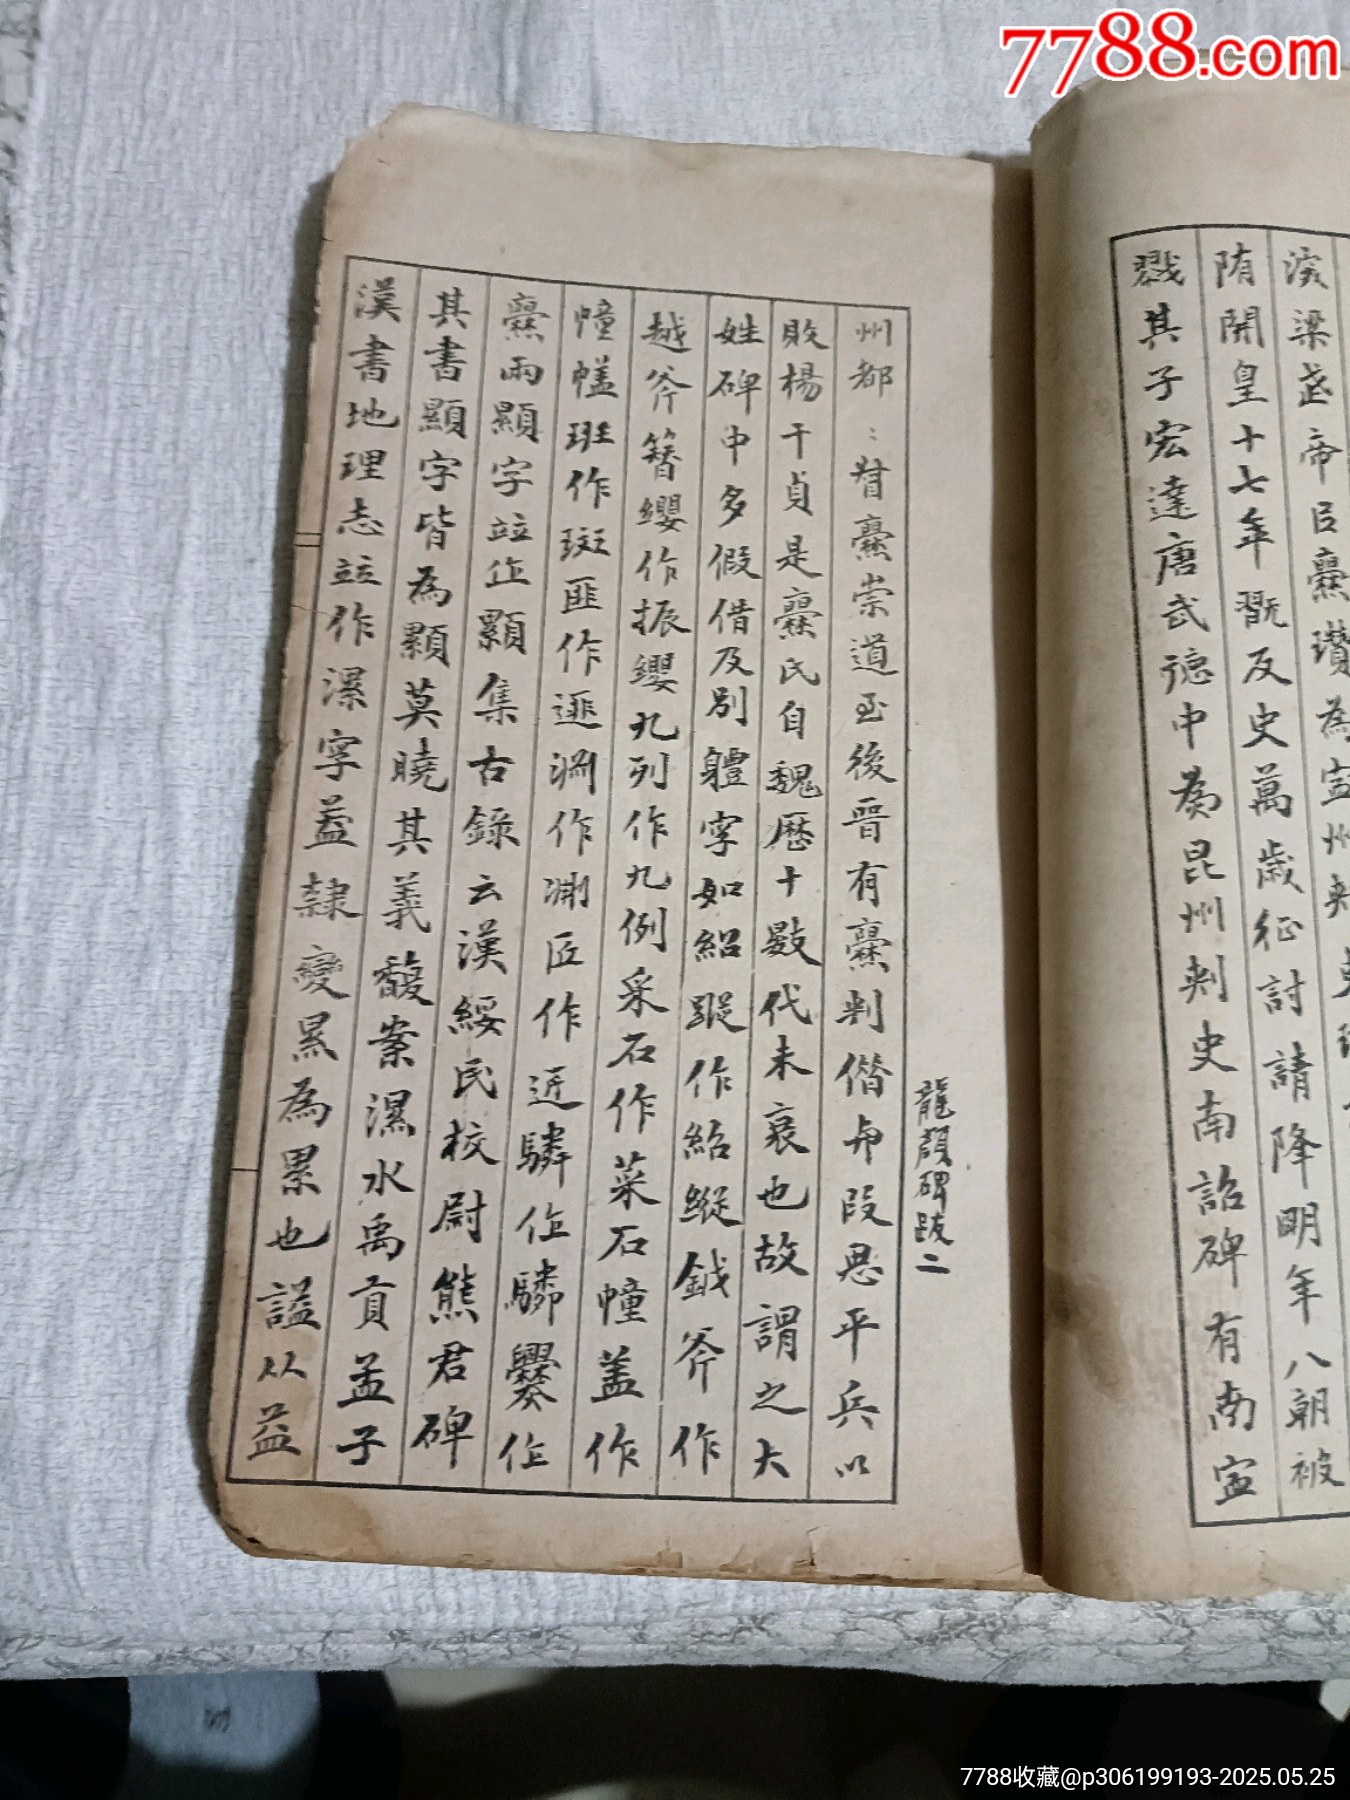 7788.com
漢梁武帝臣爨瓚為寍州刺史
隋開皇十七年翫反史萬歲征討請降明年入朝被
戮其子宏達唐武德中為昆州刺史南詔碑有南寍
龍顏碑跋二
州都:督爨崇道至後晉有爨判偕与段思平兵以
敗楊干貞是爨氏自魏歷十數代未衰也故謂之大
姓碑中多假借及別體字如紹蹤作紹縱鉞斧作
越斧簪纓作振纓九列作九例采石作菜石幢盖作
幢㡌班作斑匪作逥淵作渊匠作近驎作驎爨作
爨雨顯字竝作顯集古錄云漢綏民校尉熊君碑
其書顯字皆為顯莫曉其義馥案濕水禹貢孟子
漢書地理志竝作漯字葢隸變㬎為累也謚从益
7788收藏@p306199193-2025.05.25